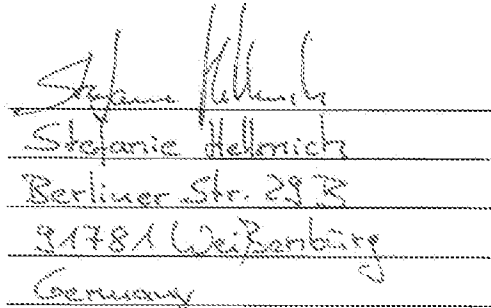 Stefanie Hellmich
Stefanie Hellmich
Berliner Str. 29 B
91781 Weißenburg
Germany